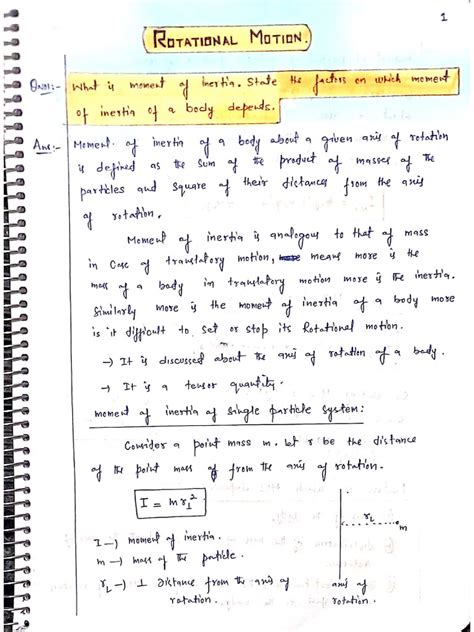 1
ROTATIONAL MOTION.
Ques:- What is moment of inertia. State the factors on which moment
of inertia of a body depends.
Ans:- Moment of inertia of a body about a given axis of rotation
is defined as the sum of the product of masses of the
particles and square of their distances from the axis
of rotation.
Moment of inertia is analogous to that of mass
in case of translatory motion, means more is the
mass of a body in translatory motion more is the inertia.
Similarly more is the moment of inertia of a body more
is it difficult to set or stop its Rotational motion.
→ It is discussed about the axis of rotation of a body.
→ It is a tensor quantity.
moment of inertia of single particle system:
Consider a point mass m. let r be the distance
of the point mass of from the axis of rotation.
I = mr⊥²
r⊥
m
I → moment of inertia.
m → mass of the particle.
r⊥ → ⊥ distance from the axis of
rotation.
axis of
rotation.